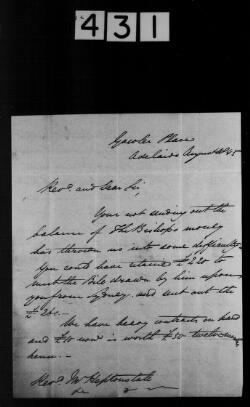 431
Gawler Place
Adelaide August
Revd. and Dear Sir,
Your not sending out the
balance of the Bishops money
has thrown us into some difficulty
You could have retained £220 to
meet the Bill drawn by him upon
you from Sydney and sent out the
We have heavy contracts on hand
and is worth £50
Revd. Mr Heptonstall